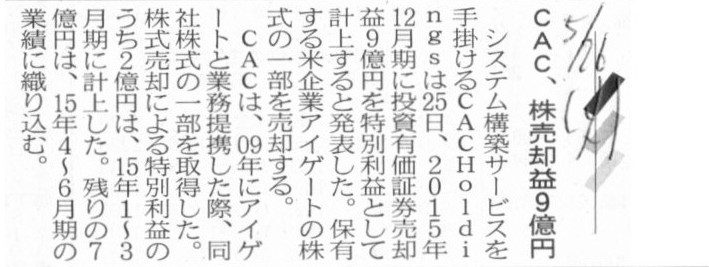 5/26
(火)
CAC、株売却益9億円
システム構築サービスを
手掛けるCACHoldi
ngsは25日、2015年
12月期に投資有価証券売却
益9億円を特別利益として
計上すると発表した。保有
する米企業アイゲートの株
式の一部を売却する。
CACは、09年にアイゲ
ートと業務提携した際、同
社株式の一部を取得した。
株式売却による特別利益の
うち2億円は、15年1〜3
月期に計上した。残りの7
億円は、15年4〜6月期の
業績に織り込む。